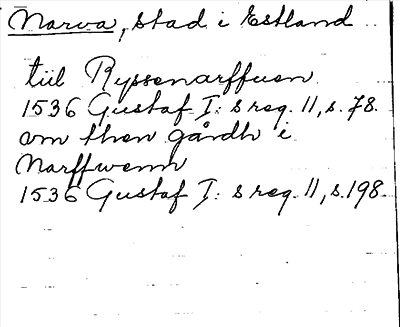 Narva, stad i Estland
till Ryssenarffuen
1536 Gustaf I: s reg. 11, s. 78.
om then gårdh i
Narffwenn
1536 Gustaf I: s reg. 11, s. 198.